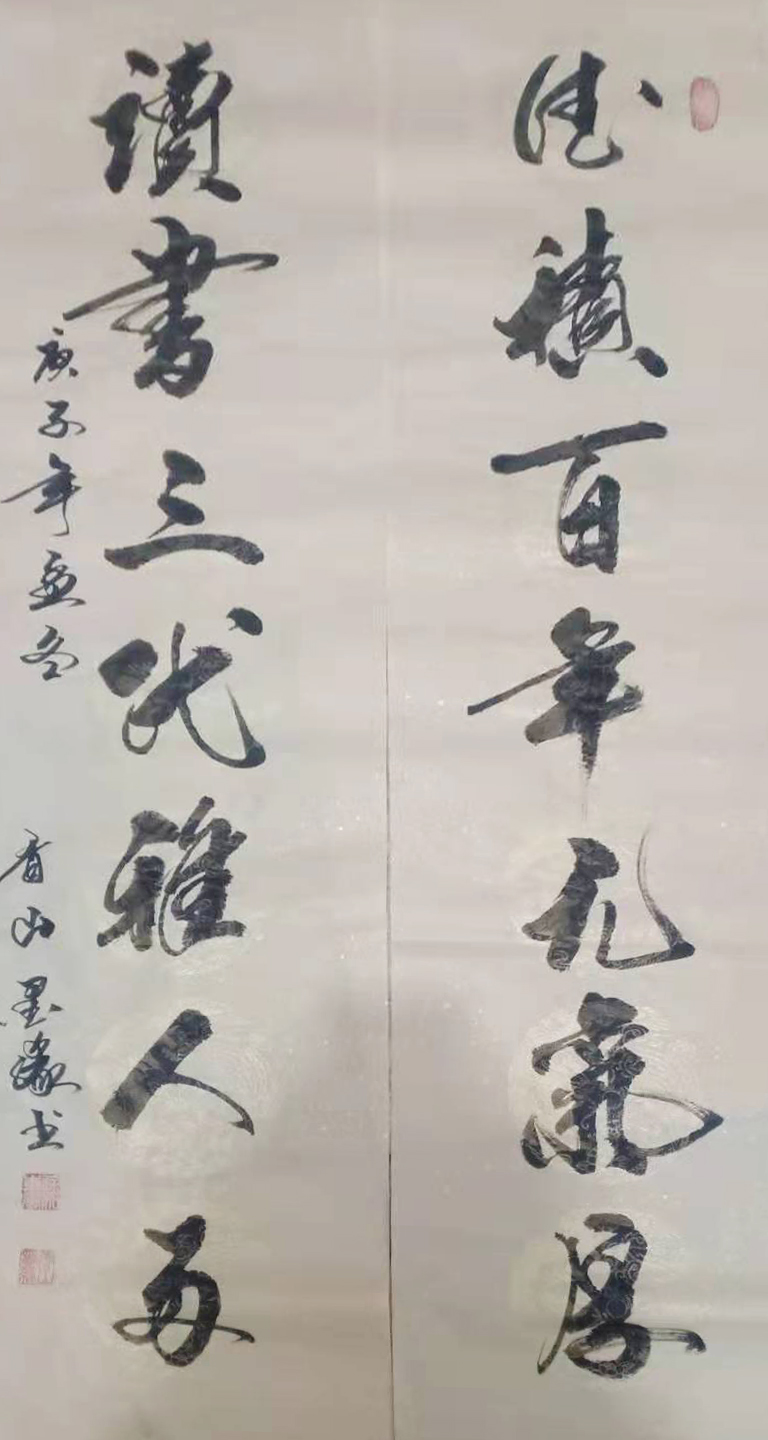 德積百年元氣厚
讀書三代雅人多
庚子年孟冬 香山墨緣书